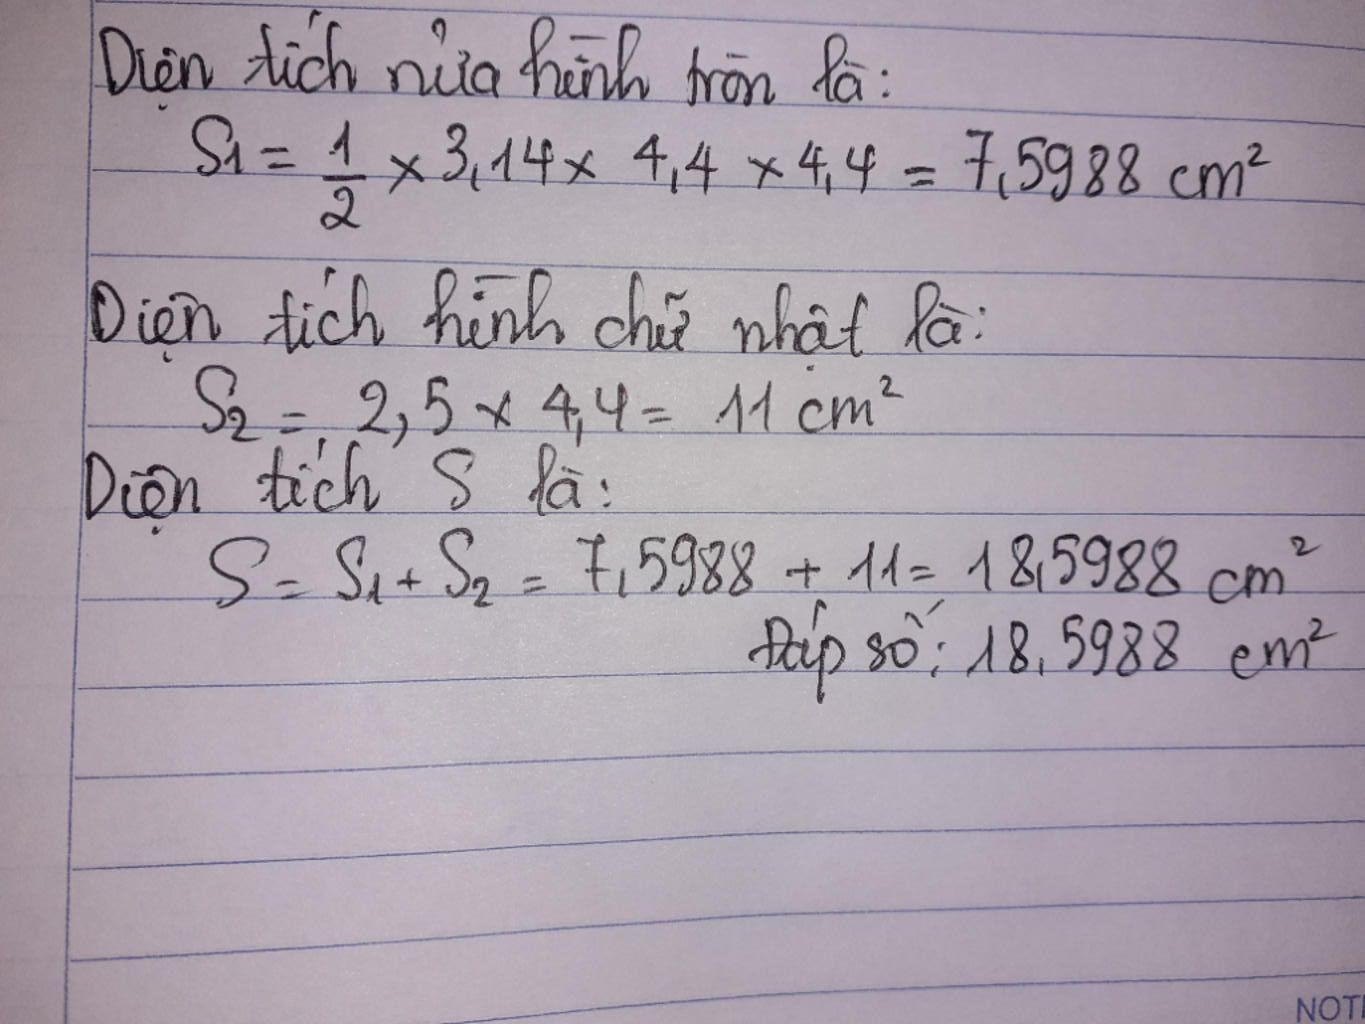 Diện tích nửa hình tròn là:
S₁ = 1/2 × 3,14 × 4,4 × 4,4 = 7,5988 cm²
Diện tích hình chữ nhật là:
S₂ = 2,5 × 4,4 = 11 cm²
Diện tích S là:
S = S₁ + S₂ = 7,5988 + 11 = 18,5988 cm²
Đáp số: 18,5988 cm²